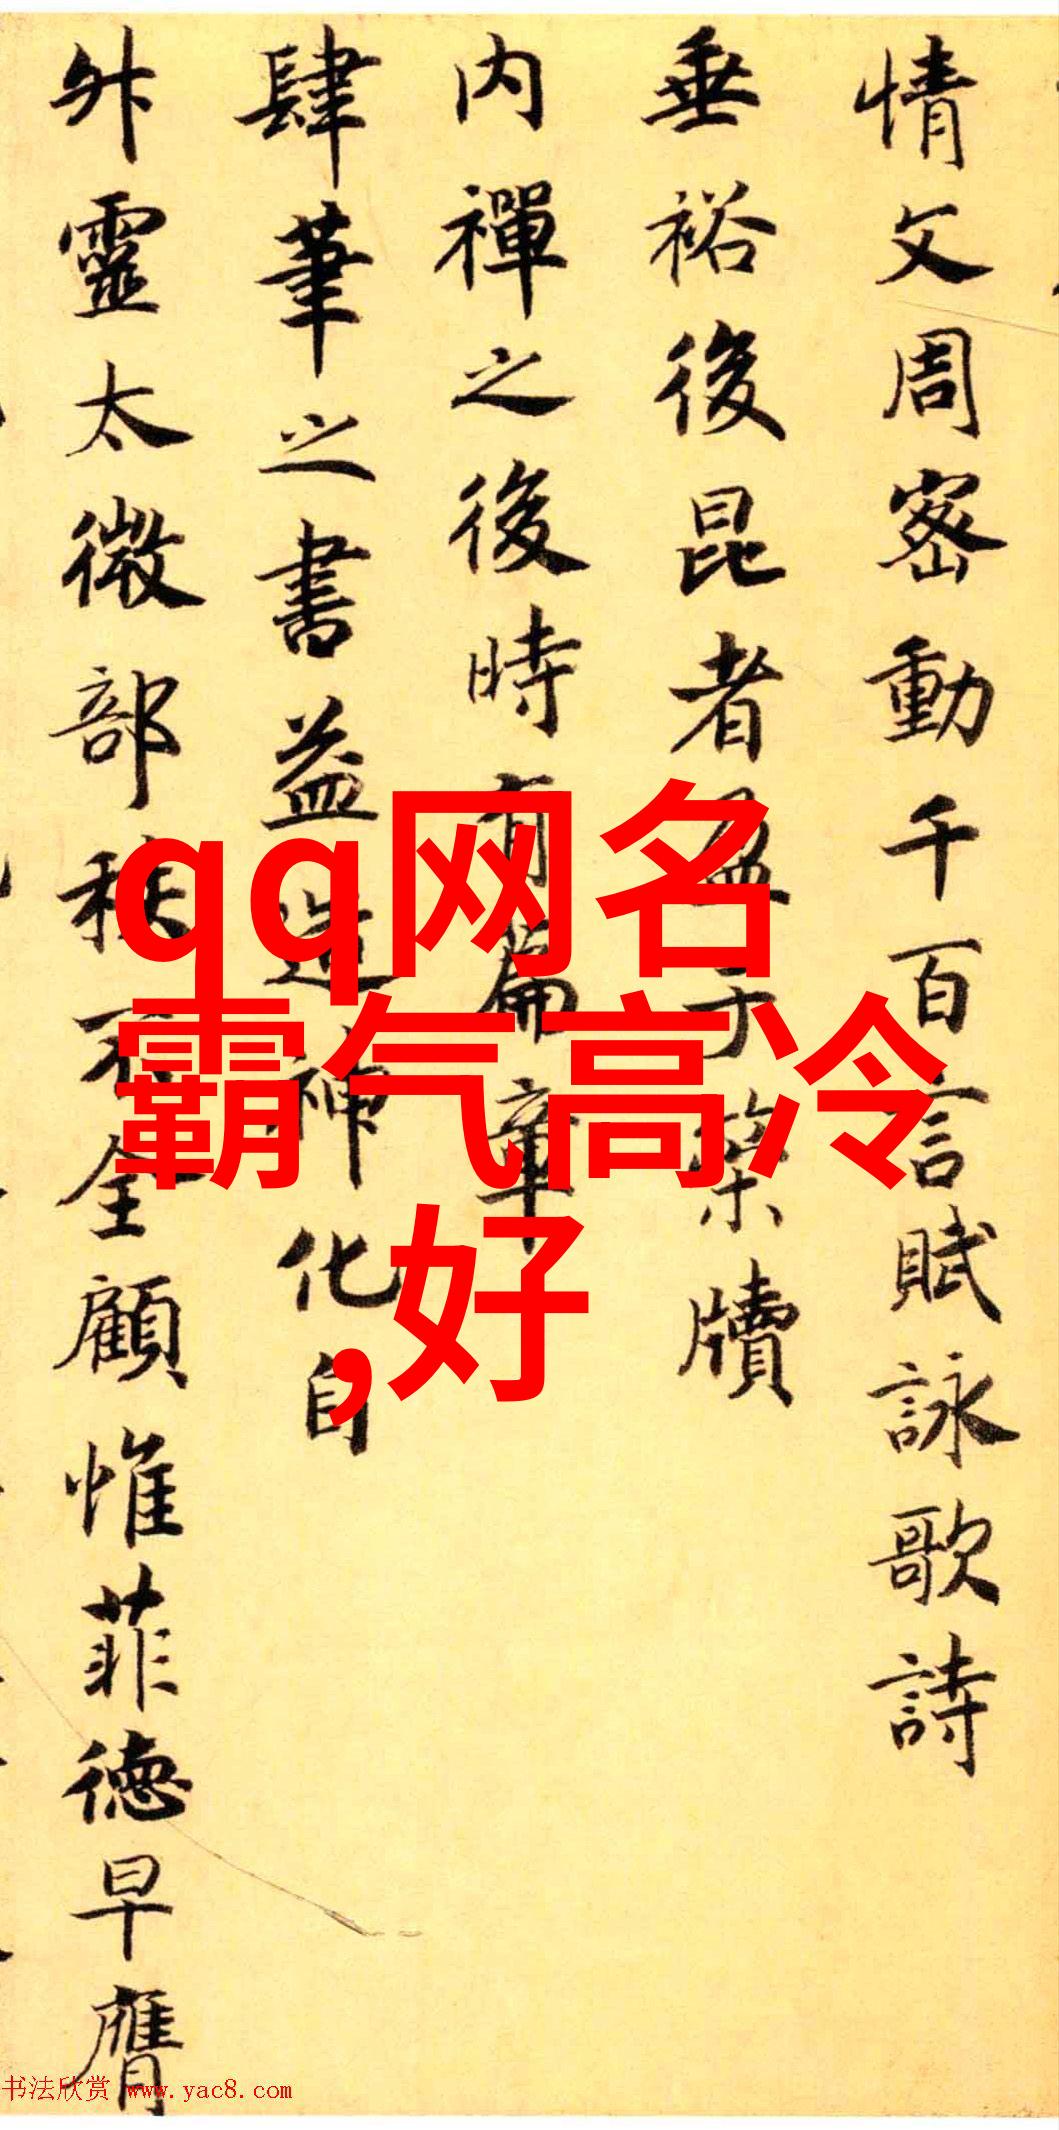 情文周密動千百言賦詠歌詩
垂裕後昆者及盈于築牘
内禪之後時有篇章
肆筆之書益造神化自
外靈太微部秩不全顧惟菲德早膺
qq网名
霸气高冷
,好
书法欣赏 www.yac8.com